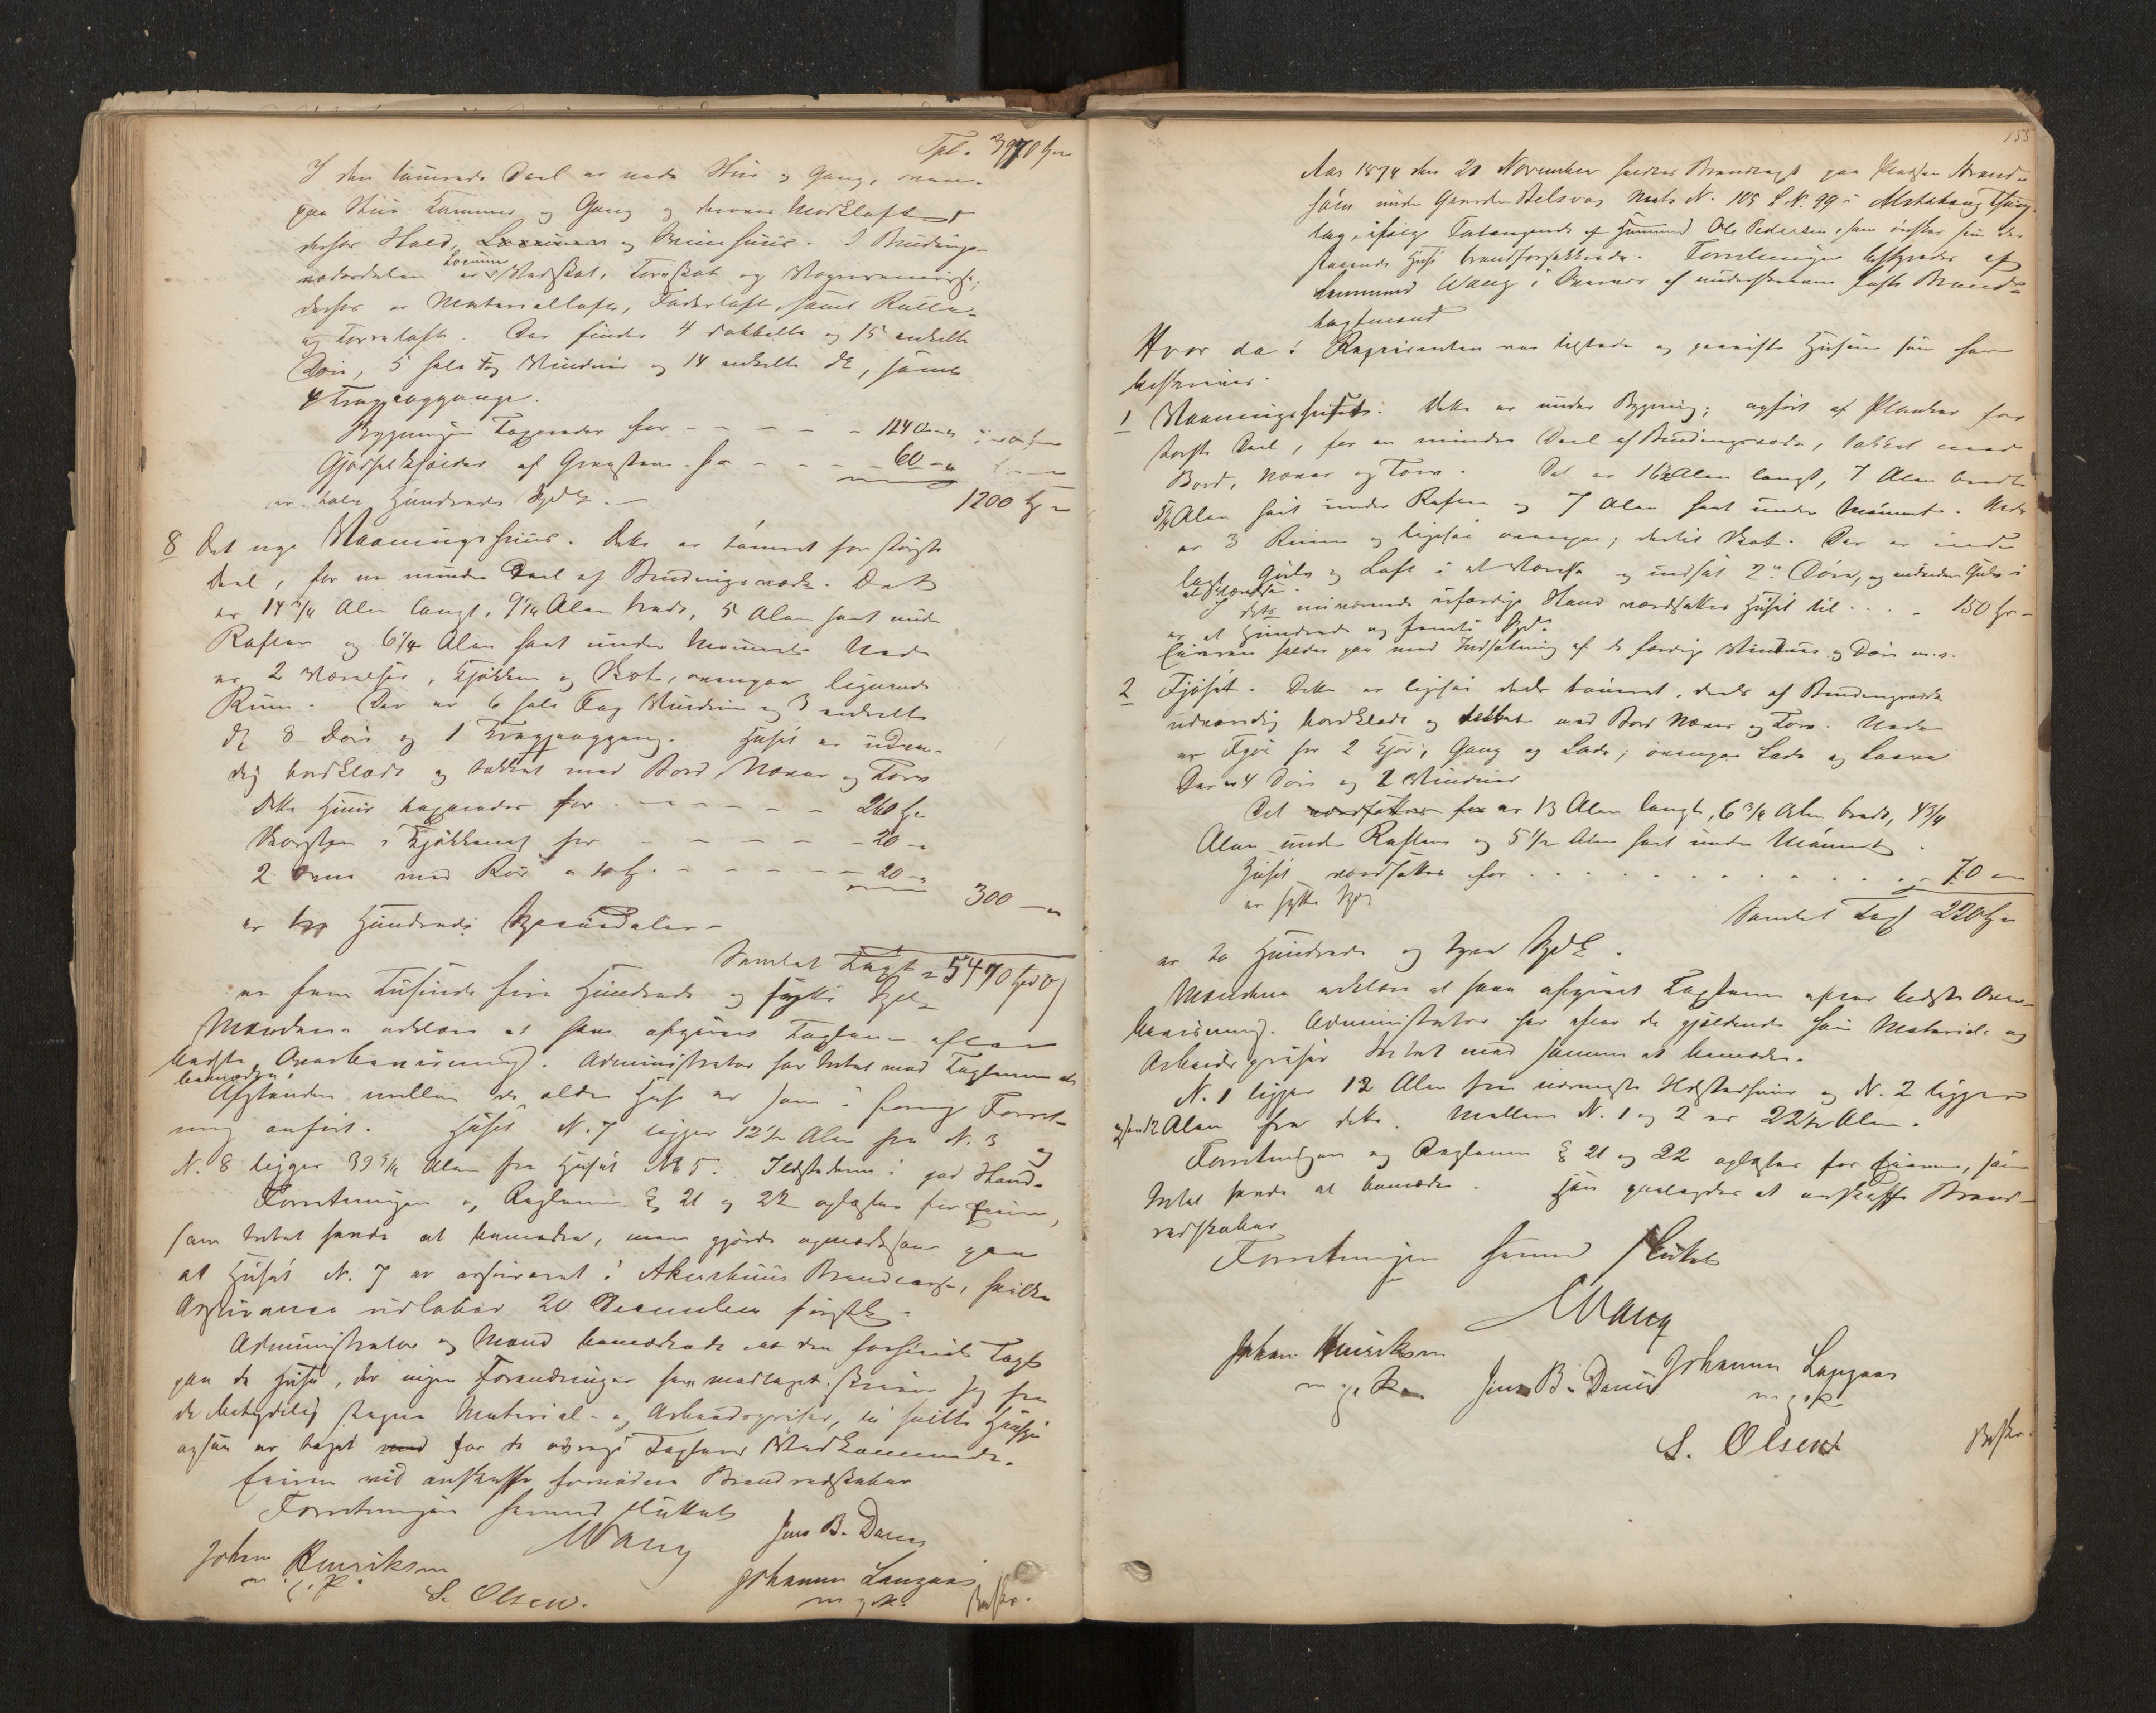 Tpl. 3970 Spd
I den tømrede Deel er nede Stue og Gang, oven-
paa Stue Kammer og Gang og derover Mørkloft
derfor Stald, og Grimehuus. I Bindings-
værksdelen er Locum Vedskot, Tørvskot og Vognremisse;
derfor er Materialloft, Foderloft samt Rulle-
og Tørveloft. Der findes 4 dobbelte og 15 enkelte
Døre, 5 hele Fag Vinduer og 14 enkelte do, samt
4 Trappeopgange.
Bygningen taxeredes for - - - - - 1140 - "
Gjødselkjelder af Graasten for - - - - 60 - "
er tolv Hundrede Spdlr. - 1200 Spd "
8 Det nye Vaaningshuus. Dette er tømret for største
Deel, for en mindre Deel af Bindingsværk. Det
er 14 3/4 Alen langt, 9 1/4 Alen bredt, 5 Alen høit under
Raften og 6 1/4 Alen høit under Mønnet. Nede
er 2 Værelser, Kjøkken og Skot, ovenpaa lignende
Rum. Der er 6 hele Fag Vinduer og 3 enkelte
do 8 Døre og 1 Trappeopgang. Huset er udven-
dig bordklædt og tækket med Bord Næver og Torv
Dette Huus taxeredes for - - - - - 260 Spd
Skorsten i Kjøkkenet for - - - - - - 20 - "
2 Ovne med Rør a 10 Spd. - - - - - 20 - "
300 - "
er tre Hundrede Speciedaler -
Samlet Taxt = 5470 Spd
er fem Tusinde fire Hundrede og sytti Spd
Mændene erklære at have afgivet Taxten efter
bedste Overbeviisning. Administrator har Intet mod Taxten at
bemærke.
Afstanden mellem de ældre Huse er som i forrige Forret-
ning anført. Huset N. 7 ligger 12 1/2 Alen fra N. 3 og
N. 8 ligger 39 3/4 Alen fra Huset N 5. Ildstederne i god Stand.
Forretningen og Reglerne § 21 og 22 oplæstes for Eieren,
som Intet havde at bemærke, men gjorde opmærksom paa
at Huset N. 7 er assureret i Akershuus Brandcasse, hvilken
Assurance udløber 20 December førstk.
Administrator og Mænd bemærkede at den forhøiede Taxt
paa de Huse, der ingen Forandringer har modtaget skriver sig fra
de betydelig stegne Material- og Arbeidspriser, til hvilke Hensyn
ogsaa er taget for de øvrige Taxters Vedkommende.
Eieren vil anskaffe fornødne Brandredskaber
Forretningen hermed sluttet
Wang Jens B. Dænes
Johan Henriksen
m. p. P. Johannes Langaas
S. Olsen. m. p. P. Besk.
155
Aar 1874 den 21 November holdtes Brandtaxt paa Pladsen Strand-
under Gaarden Belsvaag Mat. N. 105 L. N. 99 i Alstahaug Thing-
lag, ifølge Forlangende af Huusmand Ole Pedersen, som ønsker sine der
staaende Huse brandforsikkrede. Forretningen bestyredes af
Lensmand Wang i Overvær af undertegnede faste Brand-
taxtmænd
Hvor da: Reqvirenten var tilstede og paaviste Husene som her
beskrives.
1 Vaaningshuset. Dette er under Bygning; opført af Planker for
største Deel, for en mindre Deel af Bindingsværk, tækket med
Bord, Næver og Torv. Det er 16 1/2 Alen langt, 7 Alen bredt
5 1/4 Alen høit under Raften og 7 Alen høit under Mønnet. Nede
er 3 Rum og ligesaa ovenpaa; dertil Skot. Der er inde
lagt Gulv og Loft i et Værelse og indsat 2de Døre, og nedenden Gulv i
et Værelse.
I dets nuværende ufærdige Stand værdsættes Huset til . . . - 150 Spd -
er et Hundrede og femti Spdlr
Eieren holder paa med Indsætning af de færdige Vinduer og Døre m.v.
2 Fjøset. Dette er ligesaa deels tømret, deels af Bindingsværk
udvendig bordklædt og tækket med Bord Næver og Torv. Nede
er Fjøs for 2 Kjør, Gang og Lade; ovenpaa Lade og Laave
Der er 4 Døre og 2 Vinduer
Det er 13 Alen langt, 6 3/4 Alen bredt, 4 3/4
Alen under Raften og 5 1/2 Alen høit under Mønnet.
Huset værdsættes for . . . . . . . . . . 70 -
er sytti Spd
Samlet Taxt 220 Spd
er to Hundrede og tyve Spdlr.
Mændene erklære at have afgivet Taxterne efter bedste Over-
beviisning. Administrator har efter de gjældende høie Material- og
Arbeidspriser Intet mod samme at bemærke.
N. 1 ligger 12 Alen fra nærmeste Ildstedhuus og N. 2 ligger
ogsaa 12 Alen fra dette. Mellem N. 1 og 2 er 22 1/2 Alen.
Forretningen og Reglerne § 21 og 22 oplæstes for Eieren, som
Intet havde at bemærke. Han paalagdes at anskaffe Brand-
redskaber
Forretningen hermed sluttet
Wang
Johan Henriksen
m. p. P. Jens B. Dænes Johannes Langaas
m. p. P.
S. Olsen Besk.